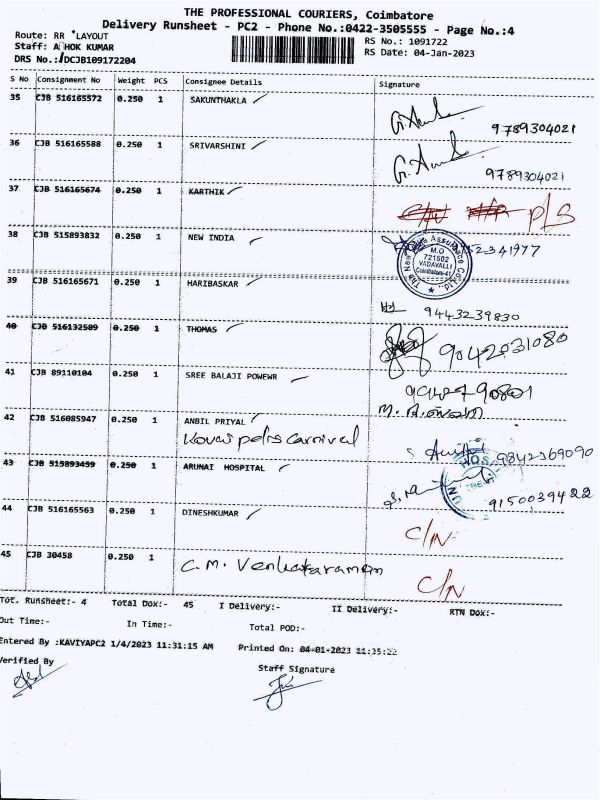 THE PROFESSIONAL COURIERS, Coimbatore
Delivery Runsheet - PC2 - Phone No.:0422-3505555 - Page No.:4
Route: RR LAYOUT
RS No.: 1091722
Staff: ASHOK KUMAR
RS Date: 04-Jan-2023
DRS No.: DCJB109172204
S No Consignment No Weight PCS Consignee Details Signature
35 CJB 516165572 0.250 1 SAKUNTHAKLA 9789304021
36 CJB 516165588 0.250 1 SRIVARSHINI 9789304021
37 CJB 516165674 0.250 1 KARTHIK P/S
38 CJB 515893832 0.250 1 NEW INDIA
The New India Assurance Co. Ltd. M.O 721502 VADAVALLI Coimbatore-41
39 CJB 516165671 0.250 1 HARIBASKAR 9443239830
40 CJB 516132589 0.250 1 THOMAS 9042031080
41 CJB 89110104 0.250 1 SREE BALAJI POWEWR
42 CJB 516085947 0.250 1 ANBIL PRIYAL
Kovai polis carnival
9842369090
43 CJB 515893459 0.250 1 ARUNAI HOSPITAL 9150039422
44 CJB 516165563 0.250 1 DINESHKUMAR C/N
45 CJB 30458 0.250 1 C.M. Venkataraman C/N
Tot. Runsheet:- 4 Total Dox:- 45 I Delivery:- II Delivery:- RTN Dox:-
Out Time:- In Time:- Total POD:-
Entered By :KAVIYAPC2 1/4/2023 11:31:15 AM Printed On: 04-01-2023 11:35:22
Verified By Staff Signature